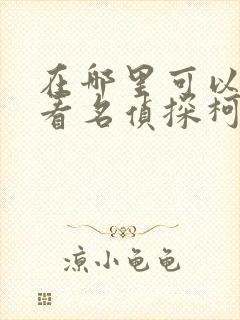 在哪里可以
看名侦探柯
凉小龟龟